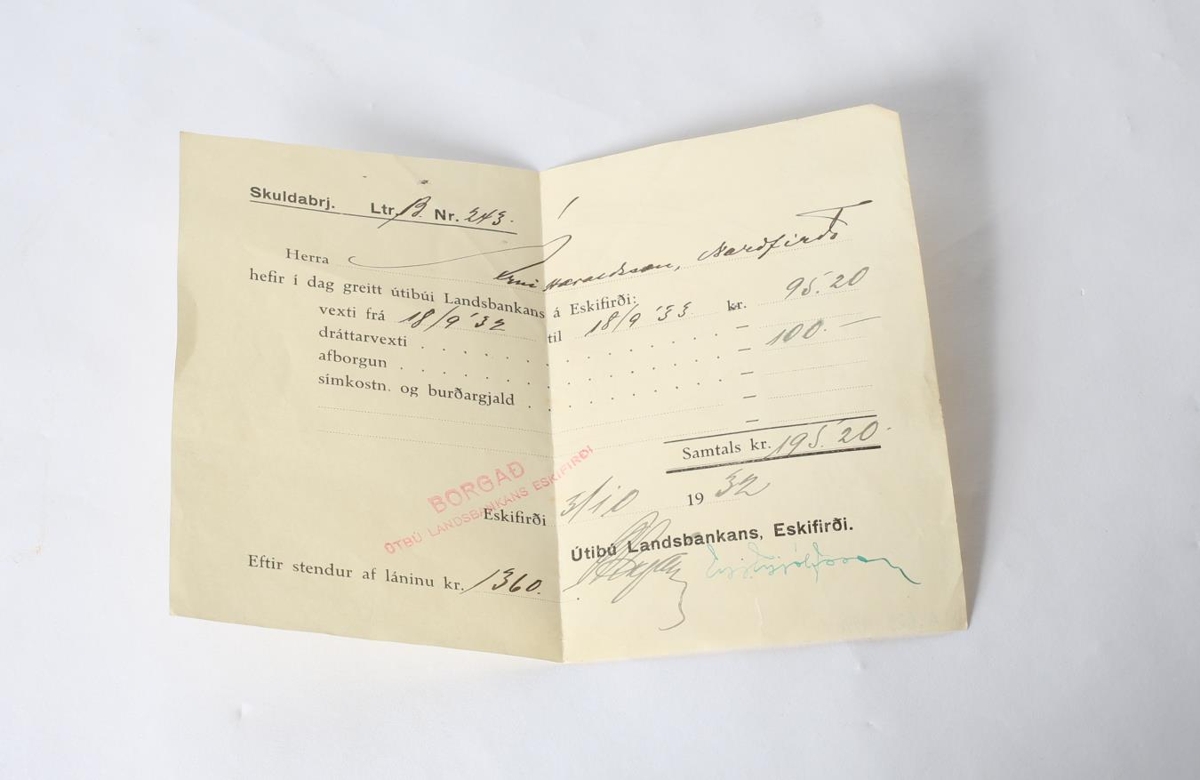 Skuldabrj. Ltr. B. Nr. 243.
Herra Haraldsson, Nordfirdi
hefir í dag greitt útibúi Landsbankans á Eskifirði:
vexti frá 18/9 '32 til 18/9 '33 kr. 95.20
dráttarvexti . . . . . . . . . . . — 100. —
afborgun . . . . . . . . . . . . —
simkostn. og burðargjald . . . . . . . —
—
Samtals kr. 195.20.
BORGAÐ
ÚTBÚ LANDSBANKANS ESKIFIRÐI
Eskifirði 3/10 1932
Útibú Landsbankans, Eskifirði.
Eftir stendur af láninu kr. 1360.